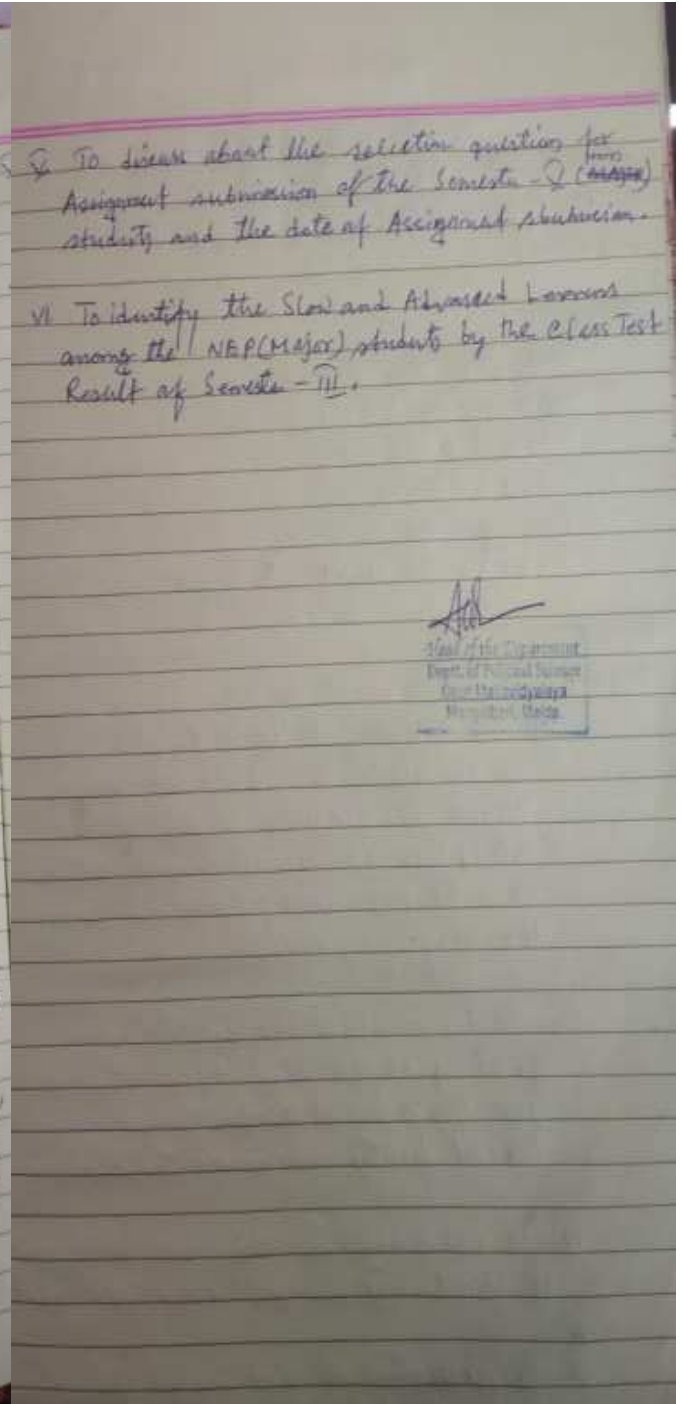 V To discuss about the selection question for
Assignment submission of the Semester - V (Hons)
students and the date of Assignment submission.
VI To identify the Slow and Advanced Learners
among the NEP(Major) students by the Class Test
Result of Semester - III.
Head of the Department
Deptt. of Political Science
Gour Mahavidyalaya
Mangalbari, Malda